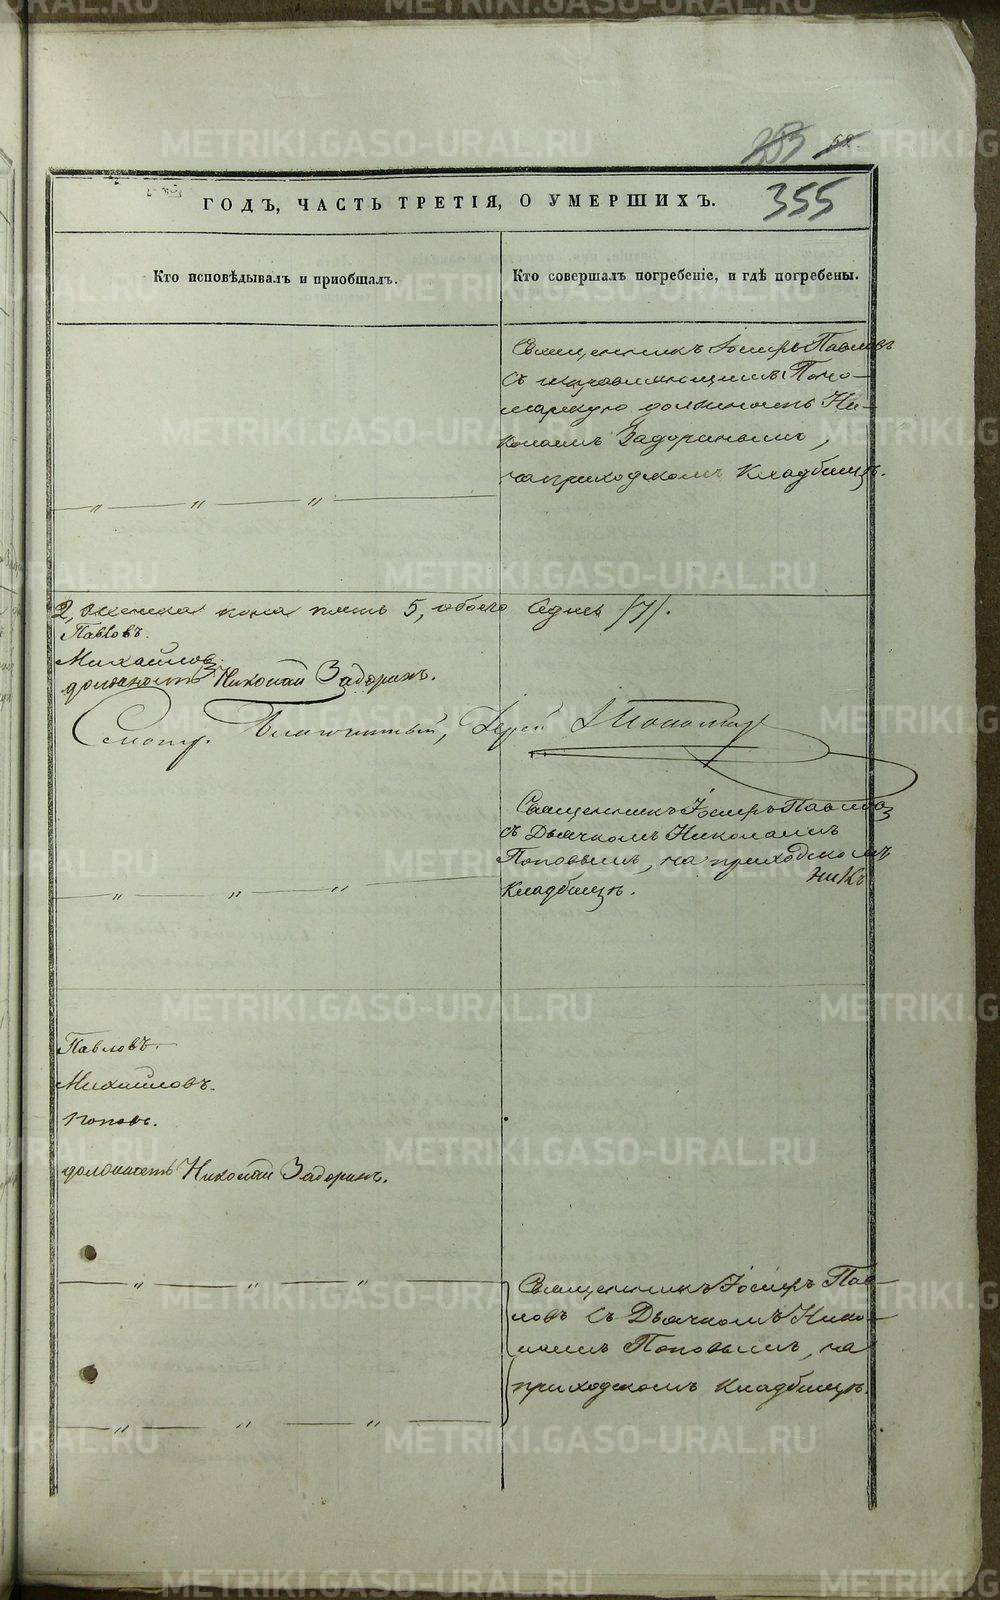 283 68
355
ГОДЪ, ЧАСТЬ ТРЕТІЯ, О УМЕРШИХЪ.
Кто исповѣдывалъ и пріобщалъ.
Кто совершалъ погребеніе, и гдѣ погребены.
Священникъ Іосифъ Павловъ
съ исправляющимъ Поно-
марскую должность Ни-
колаемъ Задоринымъ,
на приходскомъ Кладбищѣ.
2, женска пола пять 5, обоего Седмь /7/.
Павловъ.
Михайловъ.
должность Николай Задоринъ.
Смотр. Благочинный, Іерей
Священникъ Іосифъ Павловъ
съ Дьячкомъ Николаемъ
Поповымъ, на приходскомъ
Кладбищѣ.
Павловъ.
Михайловъ.
Поповъ.
должность Николай Задоринъ.
Священникъ Іосифъ Пав-
ловъ съ Дьячкомъ Нико-
лаемъ Поповымъ, на
приходскомъ Кладбищѣ.
METRIKI.GASO-URAL.RU